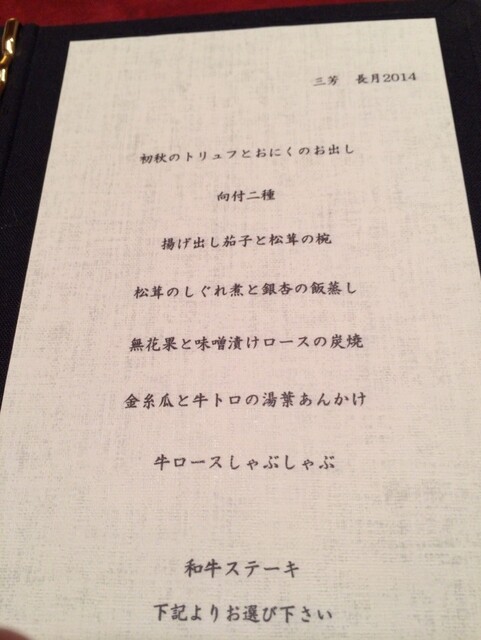 三芳 長月2014
初秋のトリュフとおにくのお出し
向付二種
揚げ出し茄子と松茸の椀
松茸のしぐれ煮と銀杏の飯蒸し
無花果と味噌漬けロースの炭焼
金糸瓜と牛トロの湯葉あんかけ
牛ロースしゃぶしゃぶ
和牛ステーキ
下記よりお選び下さい